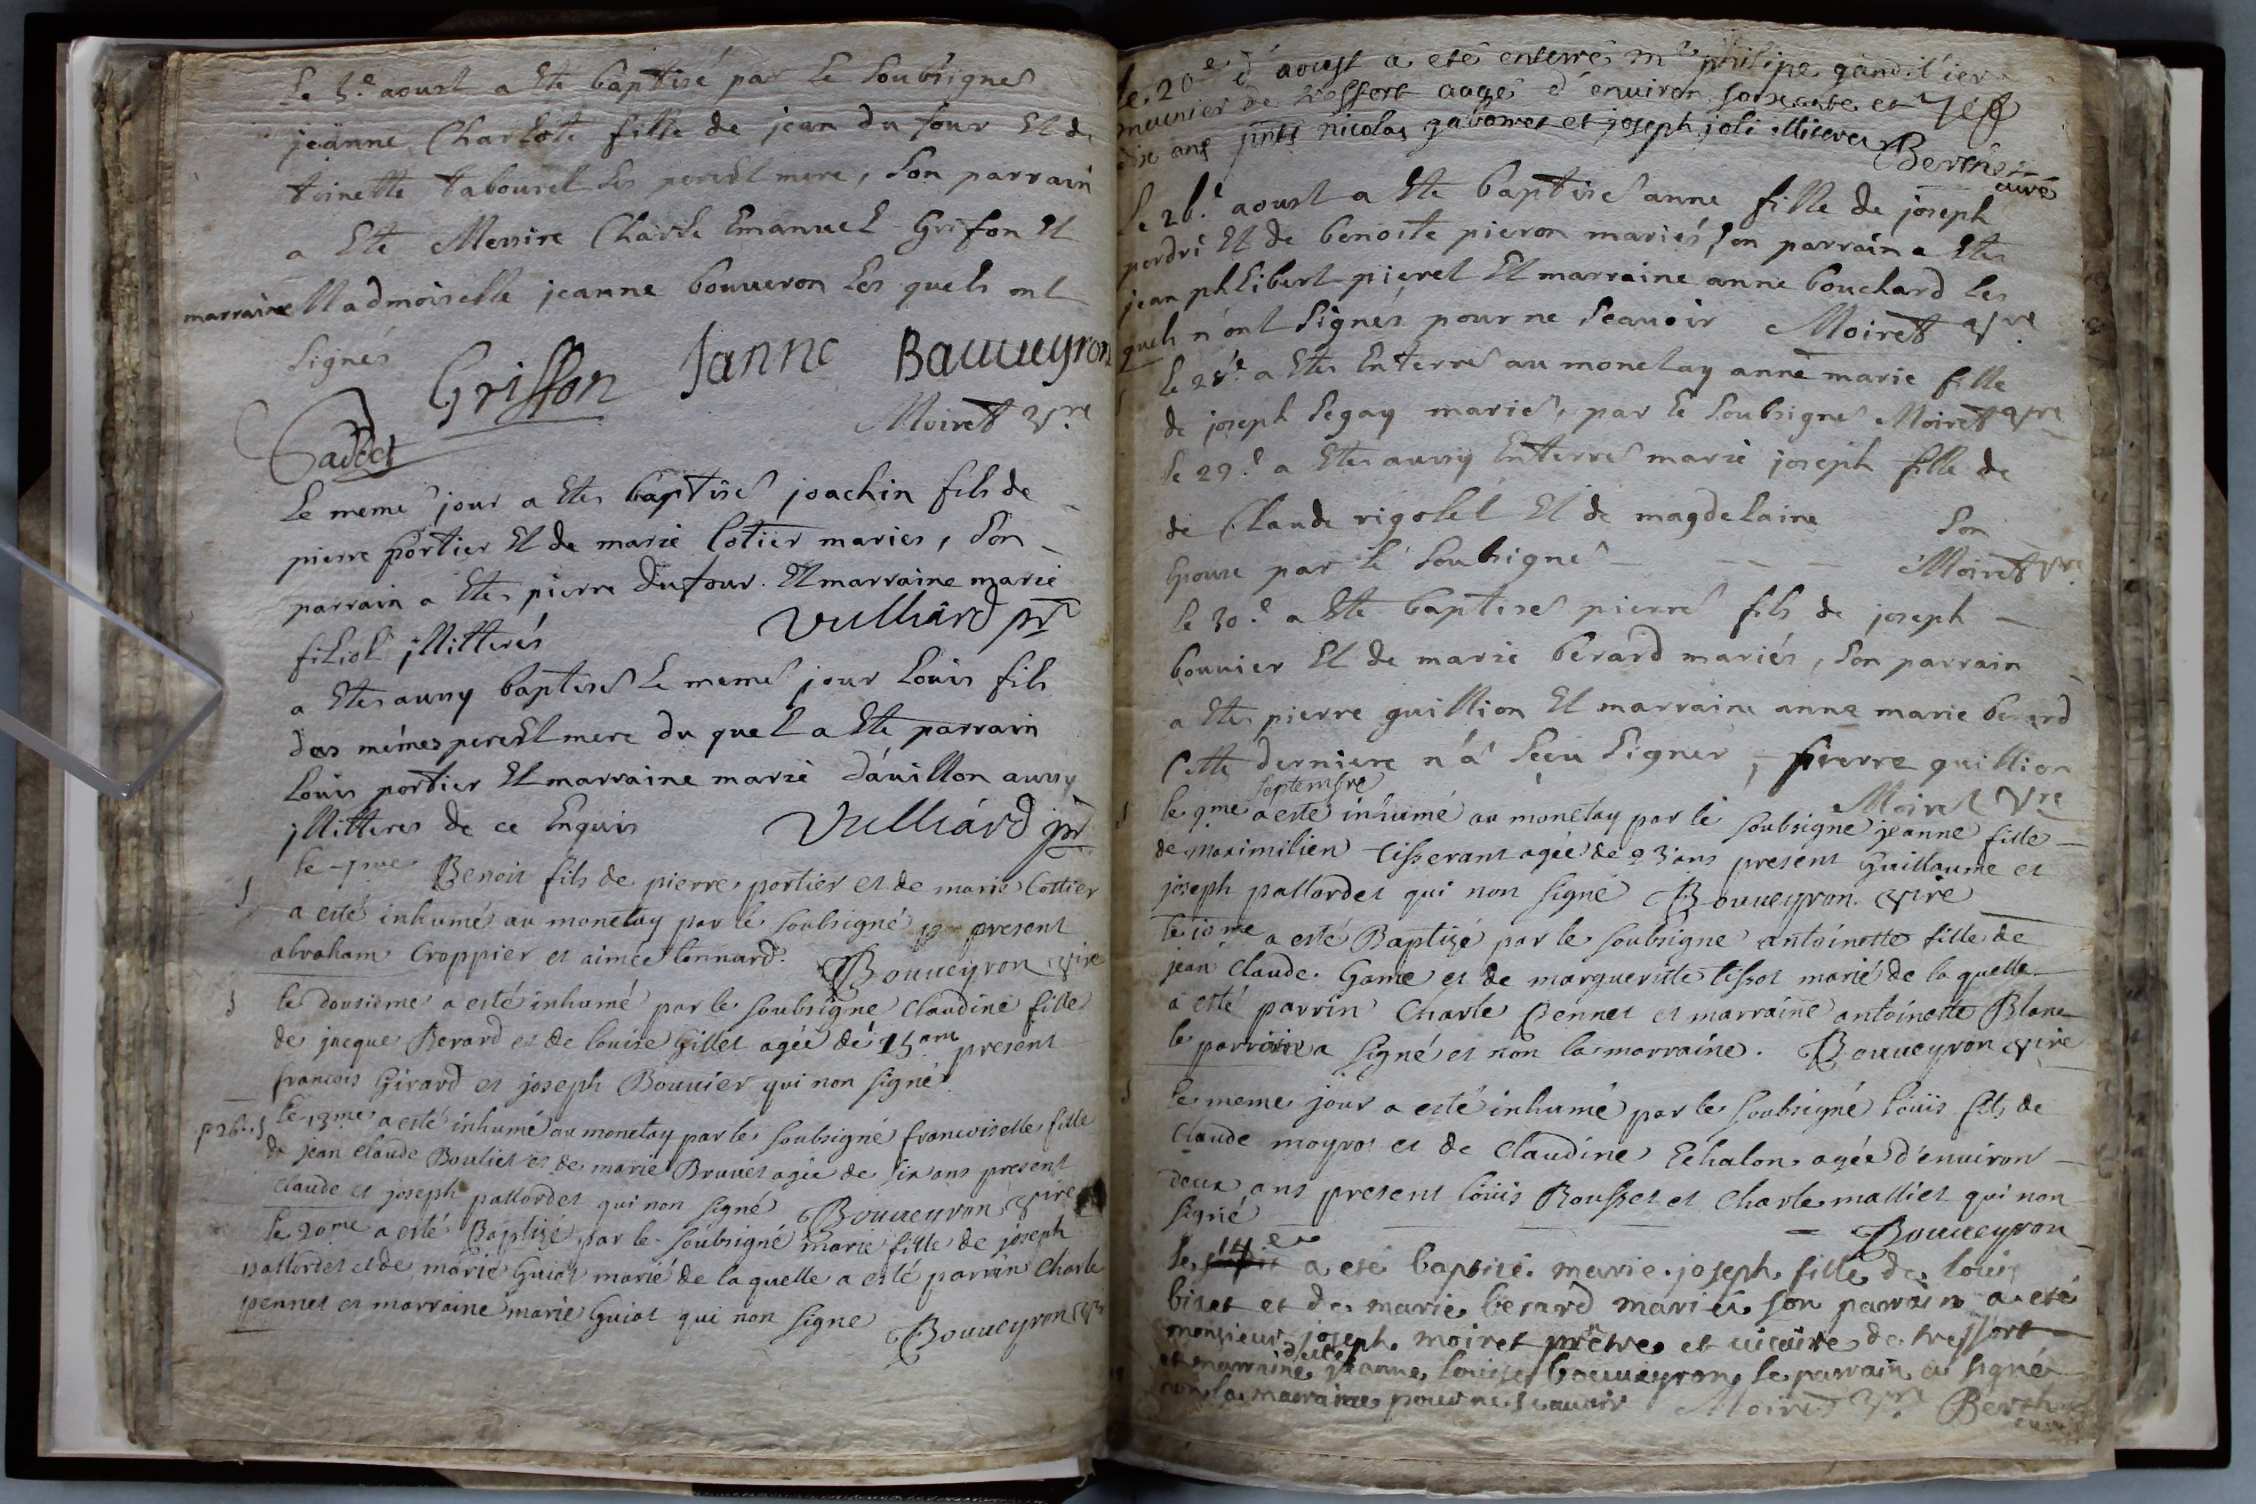 Le 5.e aoust a Ete baptisé par le Soubsigné
jeanne Charlote fille de jean du four Et de
toinette tabouret Les pereEt mere, Son parrain
a Ete Messire Charle Emanuel Grifon Et
marraine Madmoiselle jeanne bouueron Les quels ont
Signés
Griffon Janne Bauuueyron
Moiret v.re
le meme jour a Ete baptisé joachin fils de
pierre portier Et de marie Cotier mariés, Son
parrain a Ete pierre Dufour. Et marraine marie
filiol jllitterés Vulliard pr
a Ete aussy baptisé le meme jour Louis fils
des mémes pereEt mere du quel a Ete parrain
Louis portier Et marraine marie dáuillon aussy
jllitteres de ce Enquis Vulliárd pr
le 7me Benoit fils de pierre portier et de marie Cottier
a esté inhumé au monetay par le soubsigné present
abraham Croppier et aimée Connard. Bouueyron vire
le dousieme a esté inhumé par le soubsigne Claudine fille
de jacque Berard et de louise Gillet agée de 15 ans present
francois Girard et joseph Bouuier qui non signé
le 13me a esté inhumé au monetay par le soubsigné francoiselle fille
de jean claude Bouliet et de marie Bruuet agée de six ans present
claude et joseph pallordet qui non signé Bouueyron vire
le 20me a esté Baptizé par le soubsigné marie fille de joseph
pallordet et de marie Guiot marié de la quelle a esté parrin Charle
pennet et marraine marie Guiot qui non signe Bouueyron vre
le 20e d'aoust a eté enterré mr philipe gandilier
munier de tressort aagé d'enuiron soixante et
dix ans pnts nicolas gabomet et joseph joli illiterez
Berthet
curé
Le 26.e aoust a Ete baptisé anne fille de joseph
perdri Et de benoite pieron mariés, Son parrain a Ete
jean philibert pieret Et marraine anne bouchard les
quels n'ont Signés pour ne Scauoir Moiret vre
le 28.e a Ete Enterré au monetay anne marie fille
de joseph Segay mariés, par le Soubsigné Moiret vre
le 29.e a Ete aussy Enterré marie joseph fille de
de Claude rigolet Et de magdelaine Son
Epouse par le Soubsigné Moiret vre
le 30.e a Ete baptisé pierre fils de joseph
bouuier Et de marie berard mariés, Son parrain
a Ete pierre guillion Et marraine anne marie berard
Cette derniere n'a Sceu Signer, pierre guillion
Moiret vre
septembre
le 9me a esté inhumé au monetay par le soubsigne jeanne fille
de maximilien Tisserant agée de 23 ans present Guillaume et
joseph pallordet qui non signé Bouueyron. vire
le 10me a esté Baptizé par le soubsigne antoinette fille de
jean claude. Game et de marguerite tissot marié de la quelle
a esté parrin Charle Pennet et marraine antoinette Blanc
le parrain a signé et non la marraine. Bouueyron vire
le meme jour a esté inhumé par le soubsigné louis fils de
claude moyrot et de Claudine Echalon agée d'enuiron
deux ans present louis Rousset et Charle malliet qui non
signé
Bouueyron
le 14e a eté baptisé. marie. joseph fille de louis
biset et de marie berard mariés son parrain a eté
monsieur joseph moiret prêtre et uicaire de tressort
et marraine dlle jeanne louise bouuueyron le parrain a signé
non la marraine pour ne scauoir Moiret vre Berthet
curé